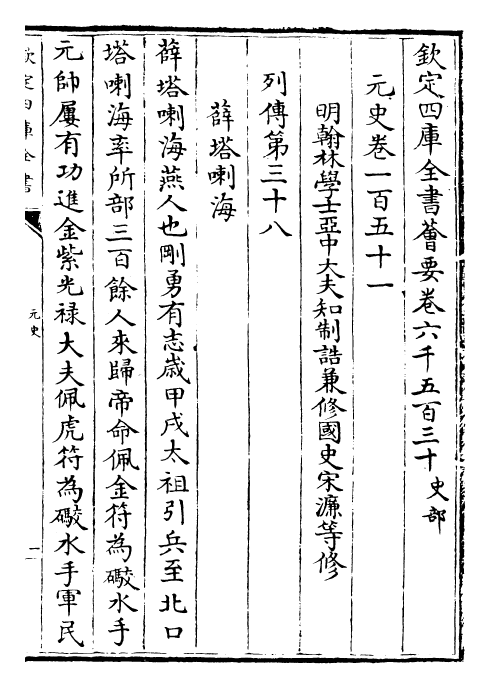 欽定四庫全書薈要卷六千五百三十 史部
元史卷一百五十一
明翰林學士亞中大夫知制誥兼修國史宋濂等修
列傳第三十八
薛塔喇海
薛塔喇海燕人也剛勇有志歲甲戌太祖引兵至北口
塔喇海率所部三百餘人來歸帝命佩金符為礮水手
元帥屢有功進金紫光祿大夫佩虎符為礮水手軍民
欽定四庫全書
元史
一